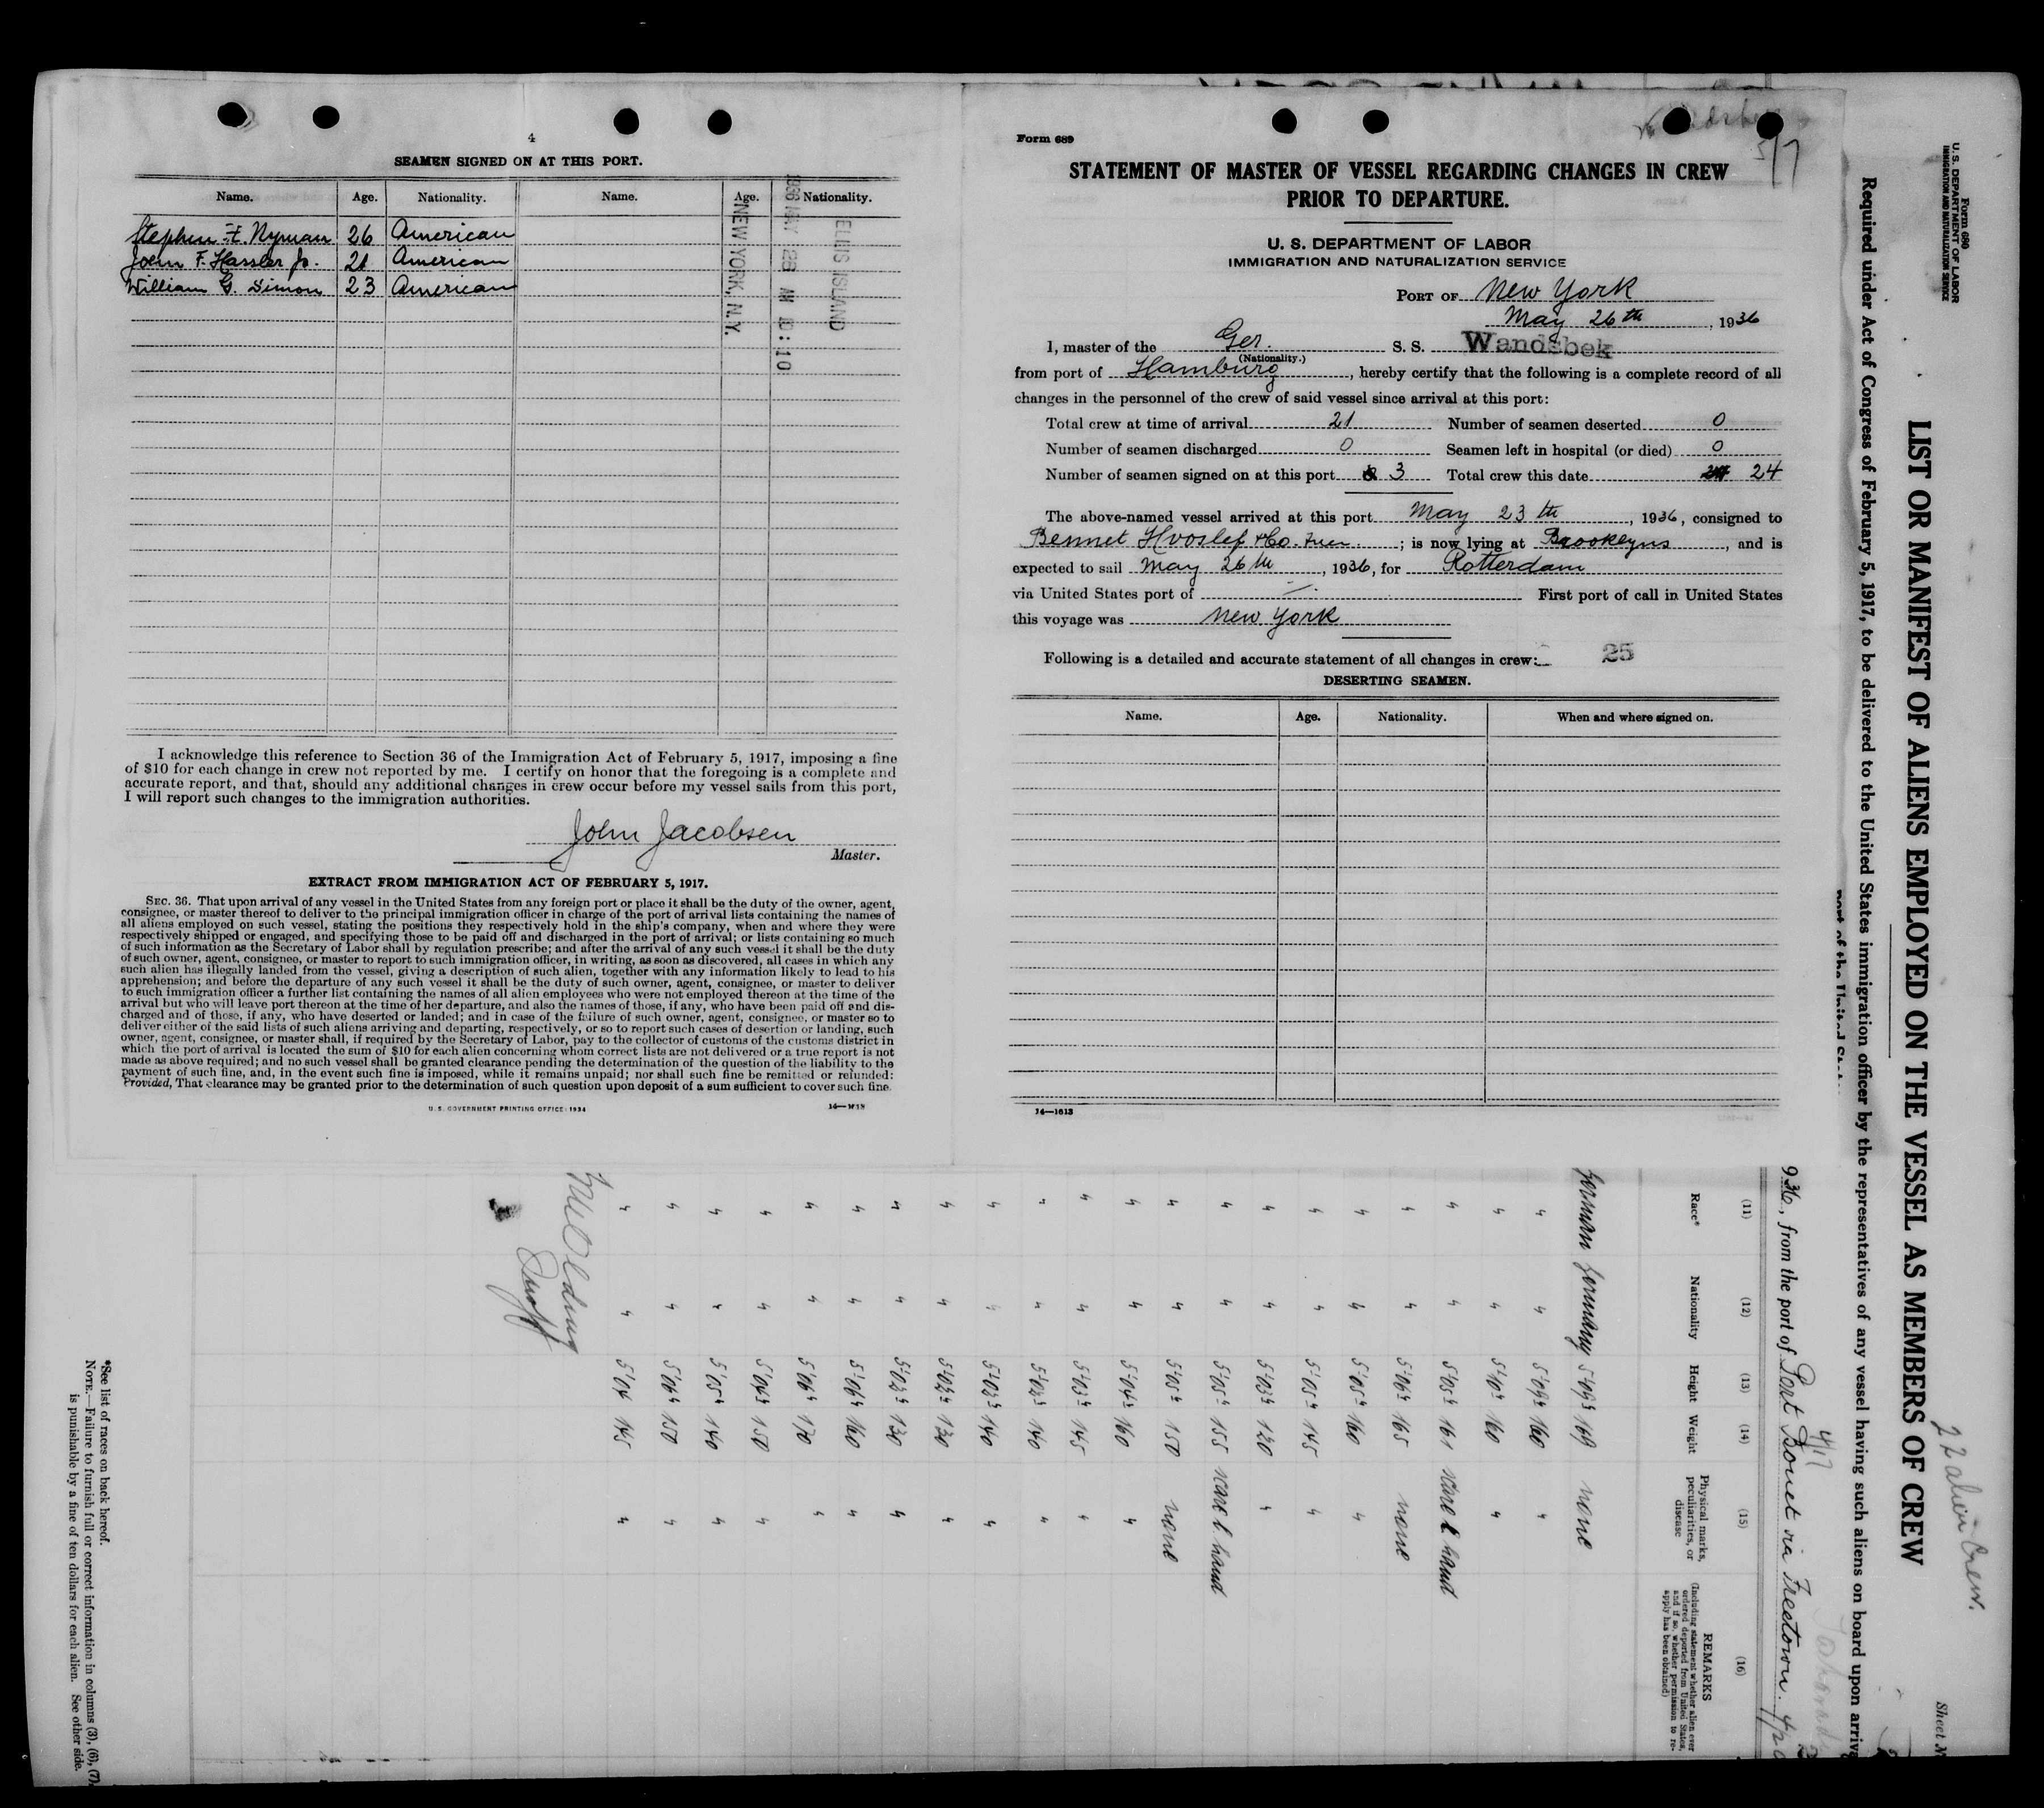 4
SEAMEN SIGNED ON AT THIS PORT.
Name. Age. Nationality. Name. Age. Nationality.
Stephen F. Nyman 26 American
John F. Hassler Jr. 21 American
William G. Simon 23 American
ELLIS ISLAND
1936 MAY 26 AM 10:10
NEW YORK, N.Y.
I acknowledge this reference to Section 36 of the Immigration Act of February 5, 1917, imposing a fine
of $10 for each change in crew not reported by me. I certify on honor that the foregoing is a complete and
accurate report, and that, should any additional changes in crew occur before my vessel sails from this port,
I will report such changes to the immigration authorities.
John Jacobsen
Master.
EXTRACT FROM IMMIGRATION ACT OF FEBRUARY 5, 1917.
SEC. 36. That upon arrival of any vessel in the United States from any foreign port or place it shall be the duty of the owner, agent,
consignee, or master thereof to deliver to the principal immigration officer in charge of the port of arrival lists containing the names of
all aliens employed on such vessel, stating the positions they respectively hold in the ship's company, when and where they were
respectively shipped or engaged, and specifying those to be paid off and discharged in the port of arrival; or lists containing so much
of such information as the Secretary of Labor shall by regulation prescribe; and after the arrival of any such vessel it shall be the duty
of such owner, agent, consignee, or master to report to such immigration officer, in writing, as soon as discovered, all cases in which any
such alien has illegally landed from the vessel, giving a description of such alien, together with any information likely to lead to his
apprehension; and before the departure of any such vessel it shall be the duty of such owner, agent, consignee, or master to deliver
to such immigration officer a further list containing the names of all alien employees who were not employed thereon at the time of the
arrival but who will leave port thereon at the time of her departure, and also the names of those, if any, who have been paid off and dis-
charged and of those, if any, who have deserted or landed; and in case of the failure of such owner, agent, consignee, or master so to
deliver either of the said lists of such aliens arriving and departing, respectively, or so to report such cases of desertion or landing, such
owner, agent, consignee, or master shall, if required by the Secretary of Labor, pay to the collector of customs of the customs district in
which the port of arrival is located the sum of $10 for each alien concerning whom correct lists are not delivered or a true report is not
made as above required; and no such vessel shall be granted clearance pending the determination of the question of the liability to the
payment of such fine, and, in the event such fine is imposed, while it remains unpaid; nor shall such fine be remitted or refunded:
Provided, That clearance may be granted prior to the determination of such question upon deposit of a sum sufficient to cover such fine.
U.S. GOVERNMENT PRINTING OFFICE: 1934
Form 689
STATEMENT OF MASTER OF VESSEL REGARDING CHANGES IN CREW
PRIOR TO DEPARTURE.
U. S. DEPARTMENT OF LABOR
IMMIGRATION AND NATURALIZATION SERVICE
PORT OF New York
May 26th, 1936
I, master of the Ger. S. S. Wandsbek
(Nationality.)
from port of Hamburg, hereby certify that the following is a complete record of all
changes in the personnel of the crew of said vessel since arrival at this port:
Total crew at time of arrival 21 Number of seamen deserted 0
Number of seamen discharged 0 Seamen left in hospital (or died) 0
Number of seamen signed on at this port 3 Total crew this date 24
The above-named vessel arrived at this port May 23th, 1936, consigned to
Bennet Hvoslef & Co. ; is now lying at Brookeyns, and is
expected to sail May 26th, 1936, for Rotterdam
via United States port of —. First port of call in United States
this voyage was New York
Following is a detailed and accurate statement of all changes in crew: 25
DESERTING SEAMEN.
Name. Age. Nationality. When and where signed on.
14—1613
Form 680
U. S. DEPARTMENT OF LABOR
IMMIGRATION AND NATURALIZATION SERVICE
22 alien Crew.
LIST OR MANIFEST OF ALIENS EMPLOYED ON THE VESSEL AS MEMBERS OF CREW
Required under Act of Congress of February 5, 1917, to be delivered to the United States immigration officer by the representatives of any vessel having such aliens on board upon arriva
port of the United States
936, from the port of Port Bouet via Freetown
4/17
(11) (12) (13) (14) (15) (16)
Race* Nationality Height Weight Physical marks, peculiarities, or disease REMARKS
(Including statement whether alien ever ordered deported from United States, and if so, whether permission to re-apply has been obtained)
German Germany 5'09½ 169 none
" " 5'09½ 160 "
" " 5'10" 160 "
" " 5'05" 161 scare l hand
" " 5'06½ 165 none
" " 5'05" 160 "
" " 5'05" 145 "
" " 5'03½ 120 "
" " 5'05" 155 scare l. hand
" " 5'05" 150 none
" " 5'04½ 160 "
" " 5'03½ 145 "
" " 5'02½ 140 "
" " 5'02½ 140 "
" " 5'02½ 130 "
" " 5'02½ 130 "
" " 5'06½ 160 "
" " 5'06" 170 "
" " 5'04½ 150 "
" " 5'05" 140 "
" " 5'06" 150 "
" " 5'04 145 "
*See list of races on back hereof.
NOTE.—Failure to furnish full or correct information in columns (3), (6), (7),
is punishable by a fine of ten dollars for each alien. See other side.